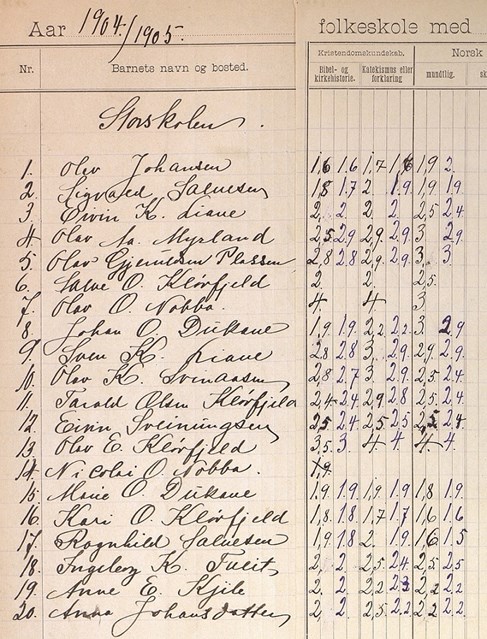 Aar 1904/1905. folkeskole med
Kristendomskundskab. Norsk
Nr. Barnets navn og bosted. Bibel- og kirkehistorie. Katekismus eller forklaring mundtlig.
Storskolen.
1. Olav Johansen 1,6 1.6 1,7 1,6 1,9 2.
2. Sigvald Salvesen 1,8 1.7 2 1.9 1,9 1.9
3. Eivin K. Liane 2, 2. 2. 2. 2,5 2.4
4 Olav Aa. Mysland 2,5 2.9 2,9 2.9 3 2.9
5. Olav Gjermundsen Plassen 2,8 2.8 2,9 2.9 3. 3.
6. Salve O. Klørfjeld 2. 2. 2.5.
7. Olav O. Nobba. 4. 4 3
8. Johan O. Dukane 1,9 1.9 2,2 2.2. 3 2.9
9. Sven K. Liane 2,8 2.8 3. 2.9. 2.9 2.9.
10. Olav K. 2,8 2.7 3. 2.9. 2.5 2.4.
11. Tarald Olsen Klørfjeld 2.4 2.4 2.9 2.8 2.5 2.4
12. Einn Sveiningsen 2,5 2.4 2,5 2.5 2,5 2.4
13. Olav E. Klørfjeld 3,5 3. 4 4. 4. 4.
14. Nicolai O. Nobba. 1,9
15. Marie O. Dukane 1,9 1.9 1,9 1.9 1,8 1.9
16. Kari O. Klørfjeld 1,8 1.8 1,7 1.7 1,6 1.6
17. Ragnhild Salvesen 1,9 1.8 2. 1.9 1,6 1.5
18. Ingeborg K. Tveit, 2, 2. 2,5 2.4 2,5 2.5
19. Anne E. Kjile 2, 2. 2,2 2.3 2,2 2.2
20. Anna Johansdatter, 2, 2. 2,5 2.2 2,2 2.2